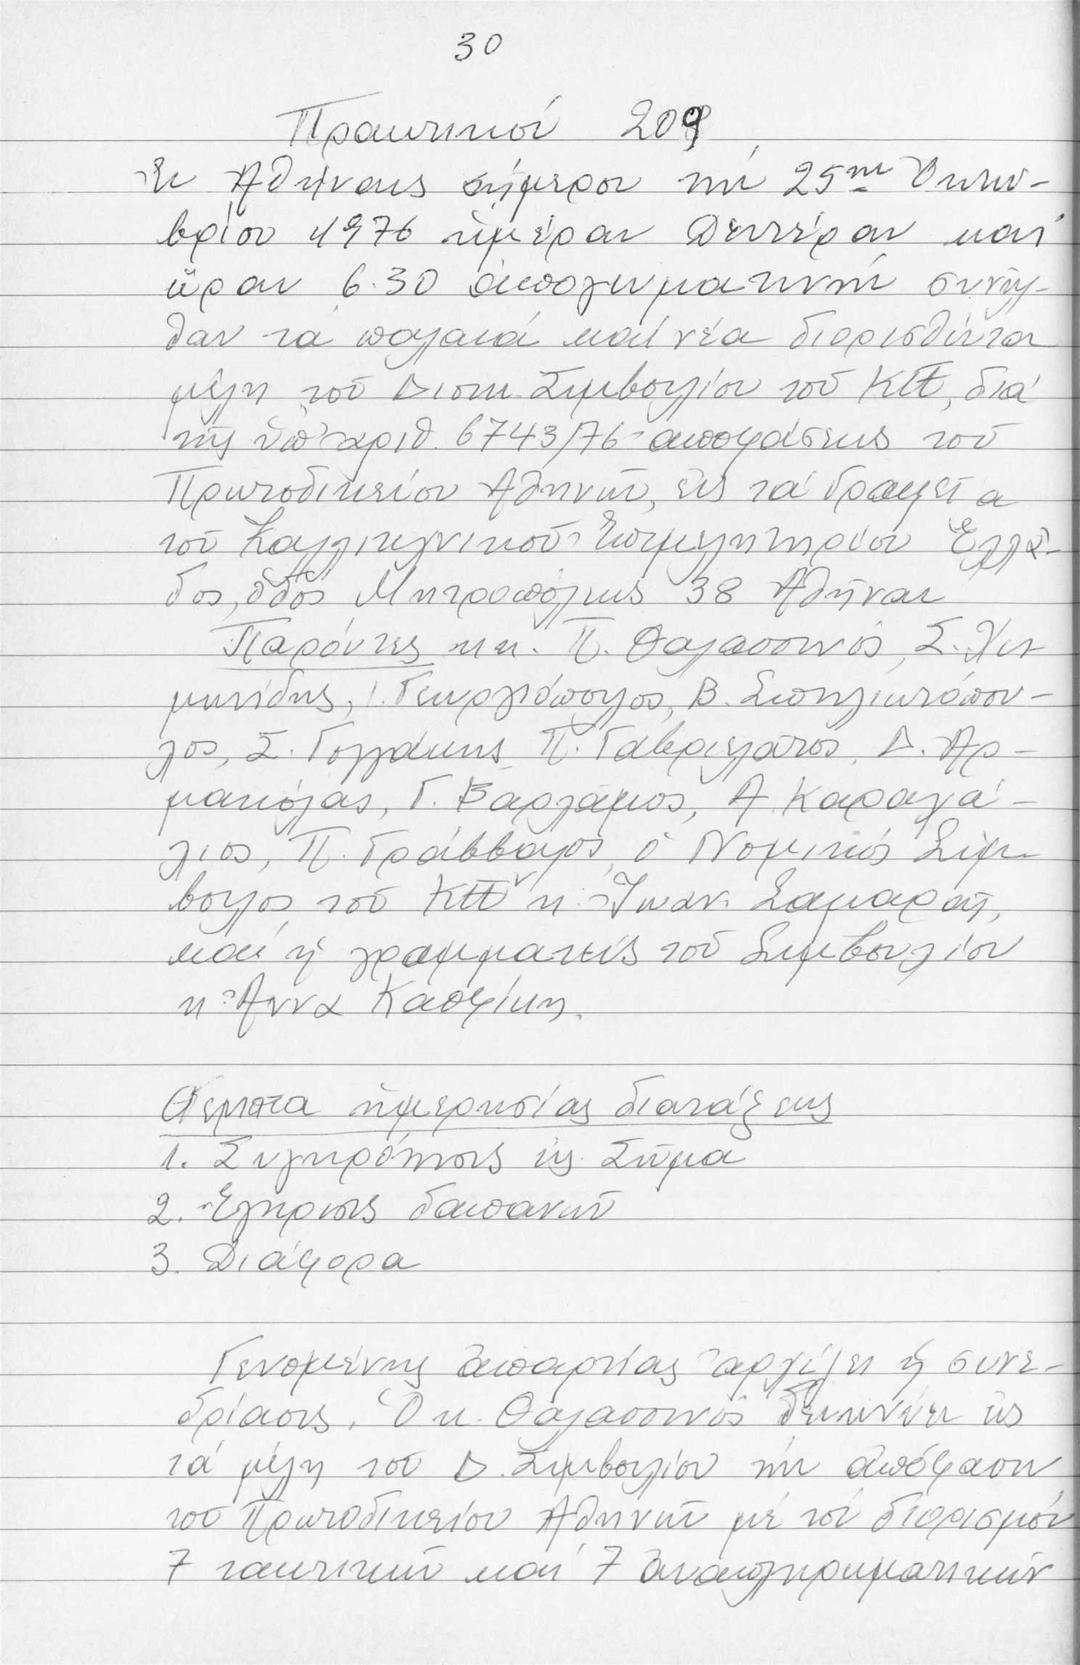 30
Πρακτικόν 209
Ἐν Ἀθήναις σήμερον τήν 25ην Ὀκτω-
βρίου 1976 ἡμέραν Δευτέραν καί
ὥραν 6.30 ἀπογευματινήν συνῆλ-
θαν τά παλαιά καί νέα διορισθέντα
μέλη τοῦ Διοικ. Συμβουλίου τοῦ ΚΠΕ, διά
τῆς ὑπ' ἀριθ. 6743/76 ἀποφάσεως τοῦ
Πρωτοδικείου Ἀθηνῶν, εἰς τά γραφεῖα
τοῦ Καλλιτεχνικοῦ Ἐπιμελητηρίου Ἑλλά-
δος, ὁδός Μητροπόλεως 38 Ἀθῆναι
Παρόντες κ.κ. Π. Θαλασσινός, Σ.
Γεωργιόπουλος, Β.
λος, Σ. Γολλάκης, Π. Γαβριελάτος, Δ. Ἀρ-
μακόλας, Γ. Βαρλάμος, Α. Καραγά-
λιος, Π. Γράββαλος, ὁ Νομικός Σύμ-
βουλος τοῦ ΚΠΕ κ. Ἰωάν. Σαμαρᾶς,
καί ἡ γραμματεύς τοῦ Συμβουλίου
κ. Ἄννα Καψίκη.
Θέματα ἡμερησίας διατάξεως
1. Συγκρότησις εἰς Σῶμα
2. Ἔγκρισις δαπανῶν
3. Διάφορα
Γενομένης ἀπαρτίας ἀρχίζει ἡ συνε-
δρίασις. Ὁ κ. Θαλασσινός δεικνύει εἰς
τά μέλη τοῦ Δ. Συμβουλίου τήν ἀπόφασιν
τοῦ Πρωτοδικείου Ἀθηνῶν μέ τόν διορισμόν
7 τακτικῶν καί 7 ἀναπληρωματικῶν